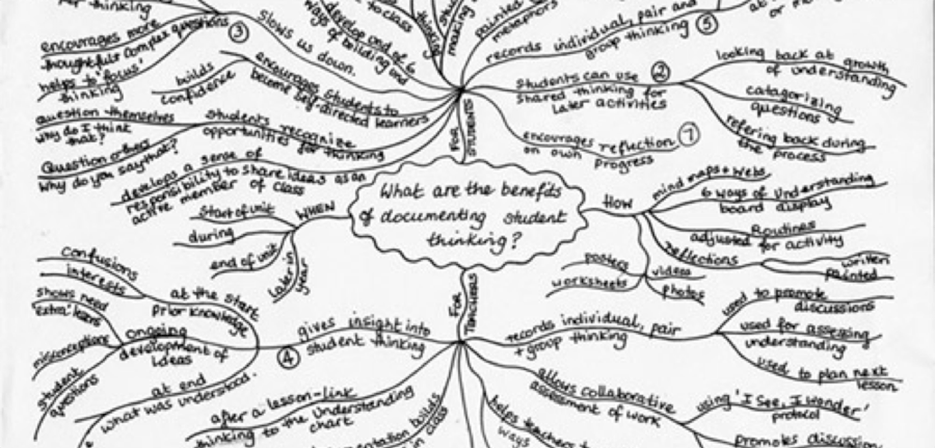 per thinking
encourages more
thoughtful complex questions
③
helps to 'focus'
thinking
slows us down.
builds
confidence
encourages students to
become self-directed learners
question themselves
why do I think
that?
Question others
Why do you say that?
students recognize
opportunities for thinking
develops a sense of
responsibility to share ideas as an
active member of class
develop one of 6
ways
of building and
to class
making
painted
metaphors
records individual, pair and
group thinking ⑤
students can use ②
shared thinking for
later activities
looking back at growth
of understanding
catagorizing
questions
refering back during
the process
encourages reflection ①
on own progress
FOR
STUDENTS
What are the benefits
of documenting student
thinking?
WHEN
start of unit
during
end of unit
later in
year
HOW
mind maps + webs
6 ways of understanding
board display
Routines
adjusted for activity
reflections
written
painted
videos
photos
posters
worksheets
FOR
TEACHERS
gives insight into
student thinking
④
at the start
Prior knowledge
confusions
interests
ongoing
development of
Ideas
shows need
'extra' lessons
misconceptions
student
questions
at end
what was understood.
after a lesson-link
thinking to the understanding
chart
builds
in class
records individual, pair
+ group thinking
used to promote
discussions
used for assessing
understanding
used to plan next
lesson
allows collaborative
assessment of work
using 'I See, I Wonder'
protocol
promotes discussion
helps teachers
ways